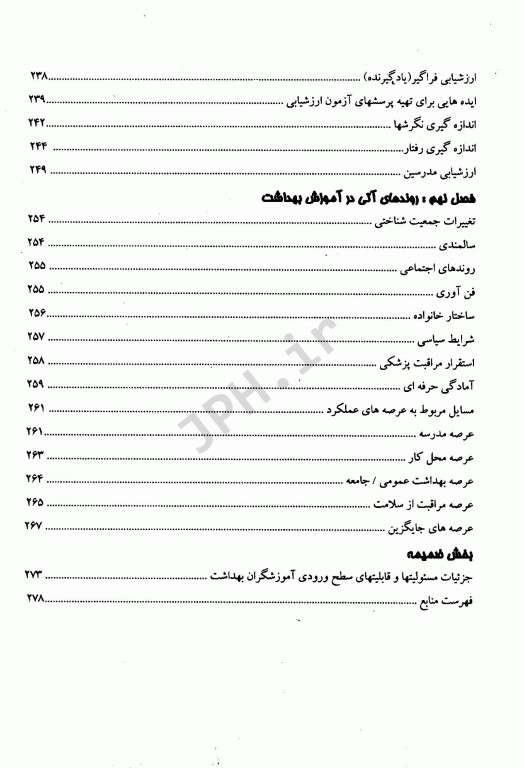 ارزشیابی فراگیر(یادگیرنده) ........................................ ۲۳۸
ایده هایی برای تهیه پرسشهای آزمون ارزشیابی ........................................ ۲۳۹
اندازه گیری نگرشها ........................................ ۲۴۲
اندازه گیری رفتار ........................................ ۲۴۴
ارزشیابی مدرسین ........................................ ۲۴۹
فصل نهم : روندهای آتی در آموزش بهداشت
تغییرات جمعیت شناختی ........................................ ۲۵۴
سالمندی ........................................ ۲۵۴
روندهای اجتماعی ........................................ ۲۵۵
فن آوری ........................................ ۲۵۵
ساختار خانواده ........................................ ۲۵۶
شرایط سیاسی ........................................ ۲۵۷
استقرار مراقبت پزشکی ........................................ ۲۵۸
آمادگی حرفه ای ........................................ ۲۵۹
مسایل مربوط به عرصه های عملکرد ........................................ ۲۶۱
عرصه مدرسه ........................................ ۲۶۱
عرصه محل کار ........................................ ۲۶۳
عرصه بهداشت عمومی / جامعه ........................................ ۲۶۴
عرصه مراقبت از سلامت ........................................ ۲۶۵
عرصه های جایگزین ........................................ ۲۶۷
بخش ضمیمه
جزئیات مسئولیتها و قابلیتهای سطح ورودی آموزشگران بهداشت ........................................ ۲۷۳
فهرست منابع ........................................ ۲۷۸
JPH.ir